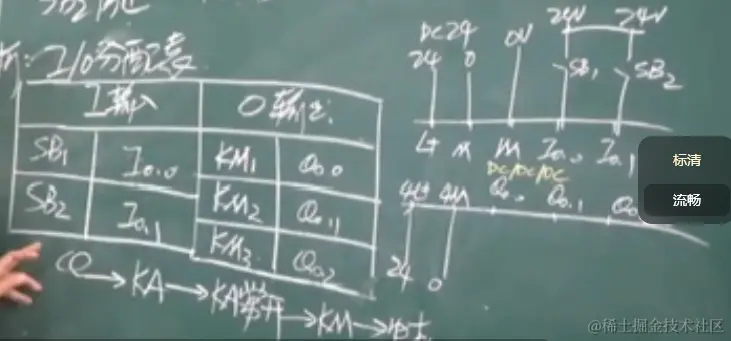 析: I/O分配表
I输入 O输出
SB1 I0.0 KM1 Q0.0
SB2 I0.1 KM2 Q0.1
KM3 Q0.2
CQ→KA→KA常开→KM→
DC24 24V 24V
24 0 0V
SB1 SB2
L+ M M I0.0 I0.1
DC/DC/DC
4L+ 4M Q0.0 Q0.1 Q0
24 0
标清
流畅
@稀土掘金技术社区